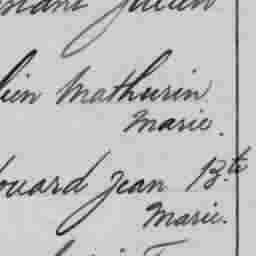 Julien
Mathurin
Marie.
ouard Jean Bte
Marie.